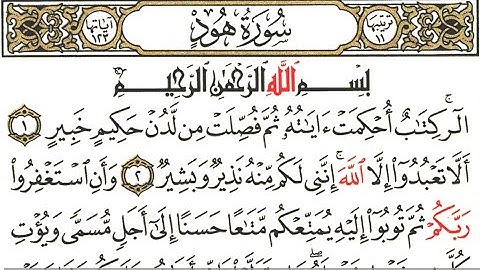 ترتيبها ١١ سُورَةُ هُودٍ آياتها ١٢٣
بِسْمِ ٱللَّهِ ٱلرَّحْمَٰنِ ٱلرَّحِيمِ
الٓر ۚ كِتَٰبٌ أُحْكِمَتْ ءَايَٰتُهُۥ ثُمَّ فُصِّلَتْ مِن لَّدُنْ حَكِيمٍ خَبِيرٍ ١
أَلَّا تَعْبُدُوٓا۟ إِلَّا ٱللَّهَ ۚ إِنَّنِى لَكُم مِّنْهُ نَذِيرٌ وَبَشِيرٌ ٢ وَأَنِ ٱسْتَغْفِرُوا۟
رَبَّكُمْ ثُمَّ تُوبُوٓا۟ إِلَيْهِ يُمَتِّعْكُم مَّتَٰعًا حَسَنًا إِلَىٰٓ أَجَلٍ مُّسَمًّى وَيُؤْتِ